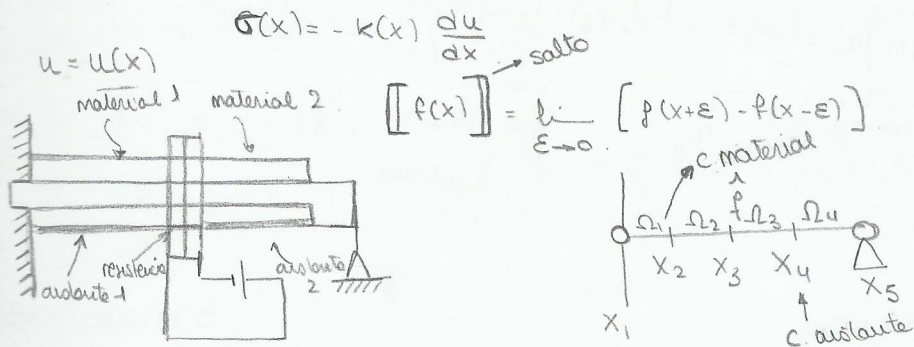 σ(x) = - k(x) du/dx
u = u(x)
salto
material 1
material 2
[[f(x)]] = lim ε→0 [f(x+ε) - f(x-ε)]
c. material
f
Ω₁ Ω₂ Ω₃ Ω₄
x₁ x₂ x₃ x₄ x₅
resistencia
aislante 1
aislante 2
c. aislante